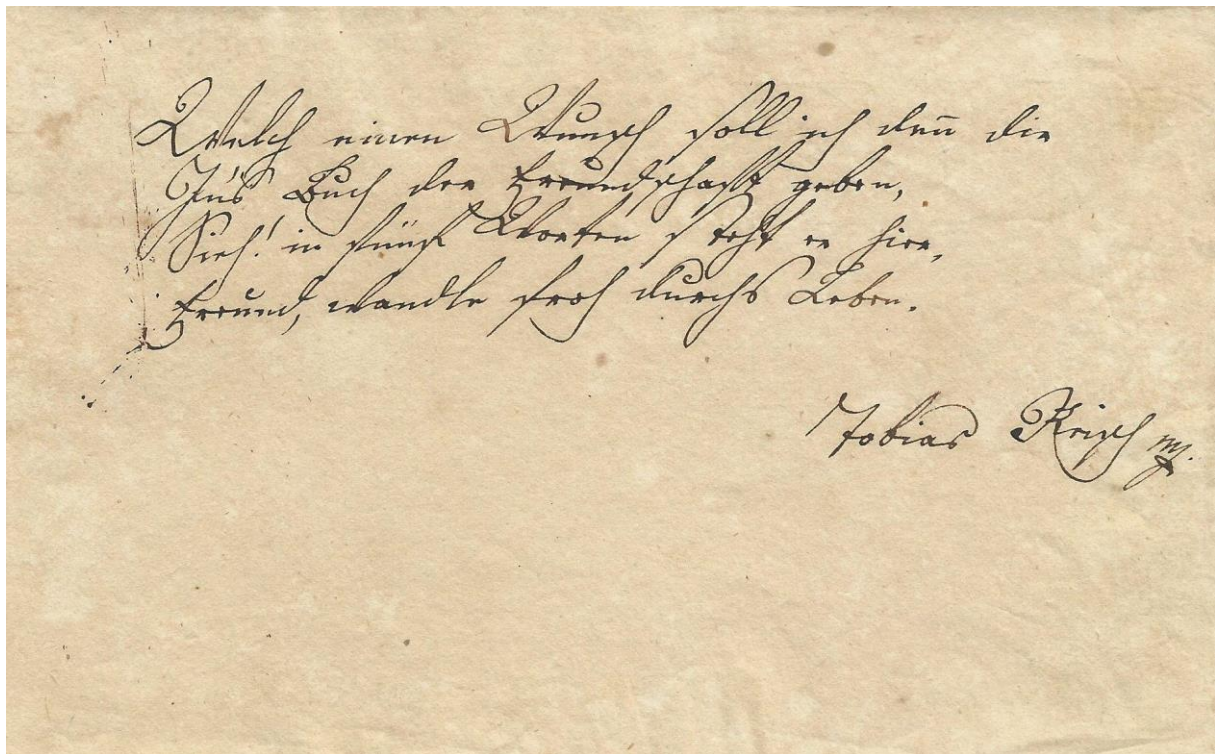 Welch einen Wunsch soll ich den̄ dir
Ins Buch der Freundschafft geben,
Sieh! in fünf Worten steht er hier,
Freund, wandle froh durchs Leben.
Tobias